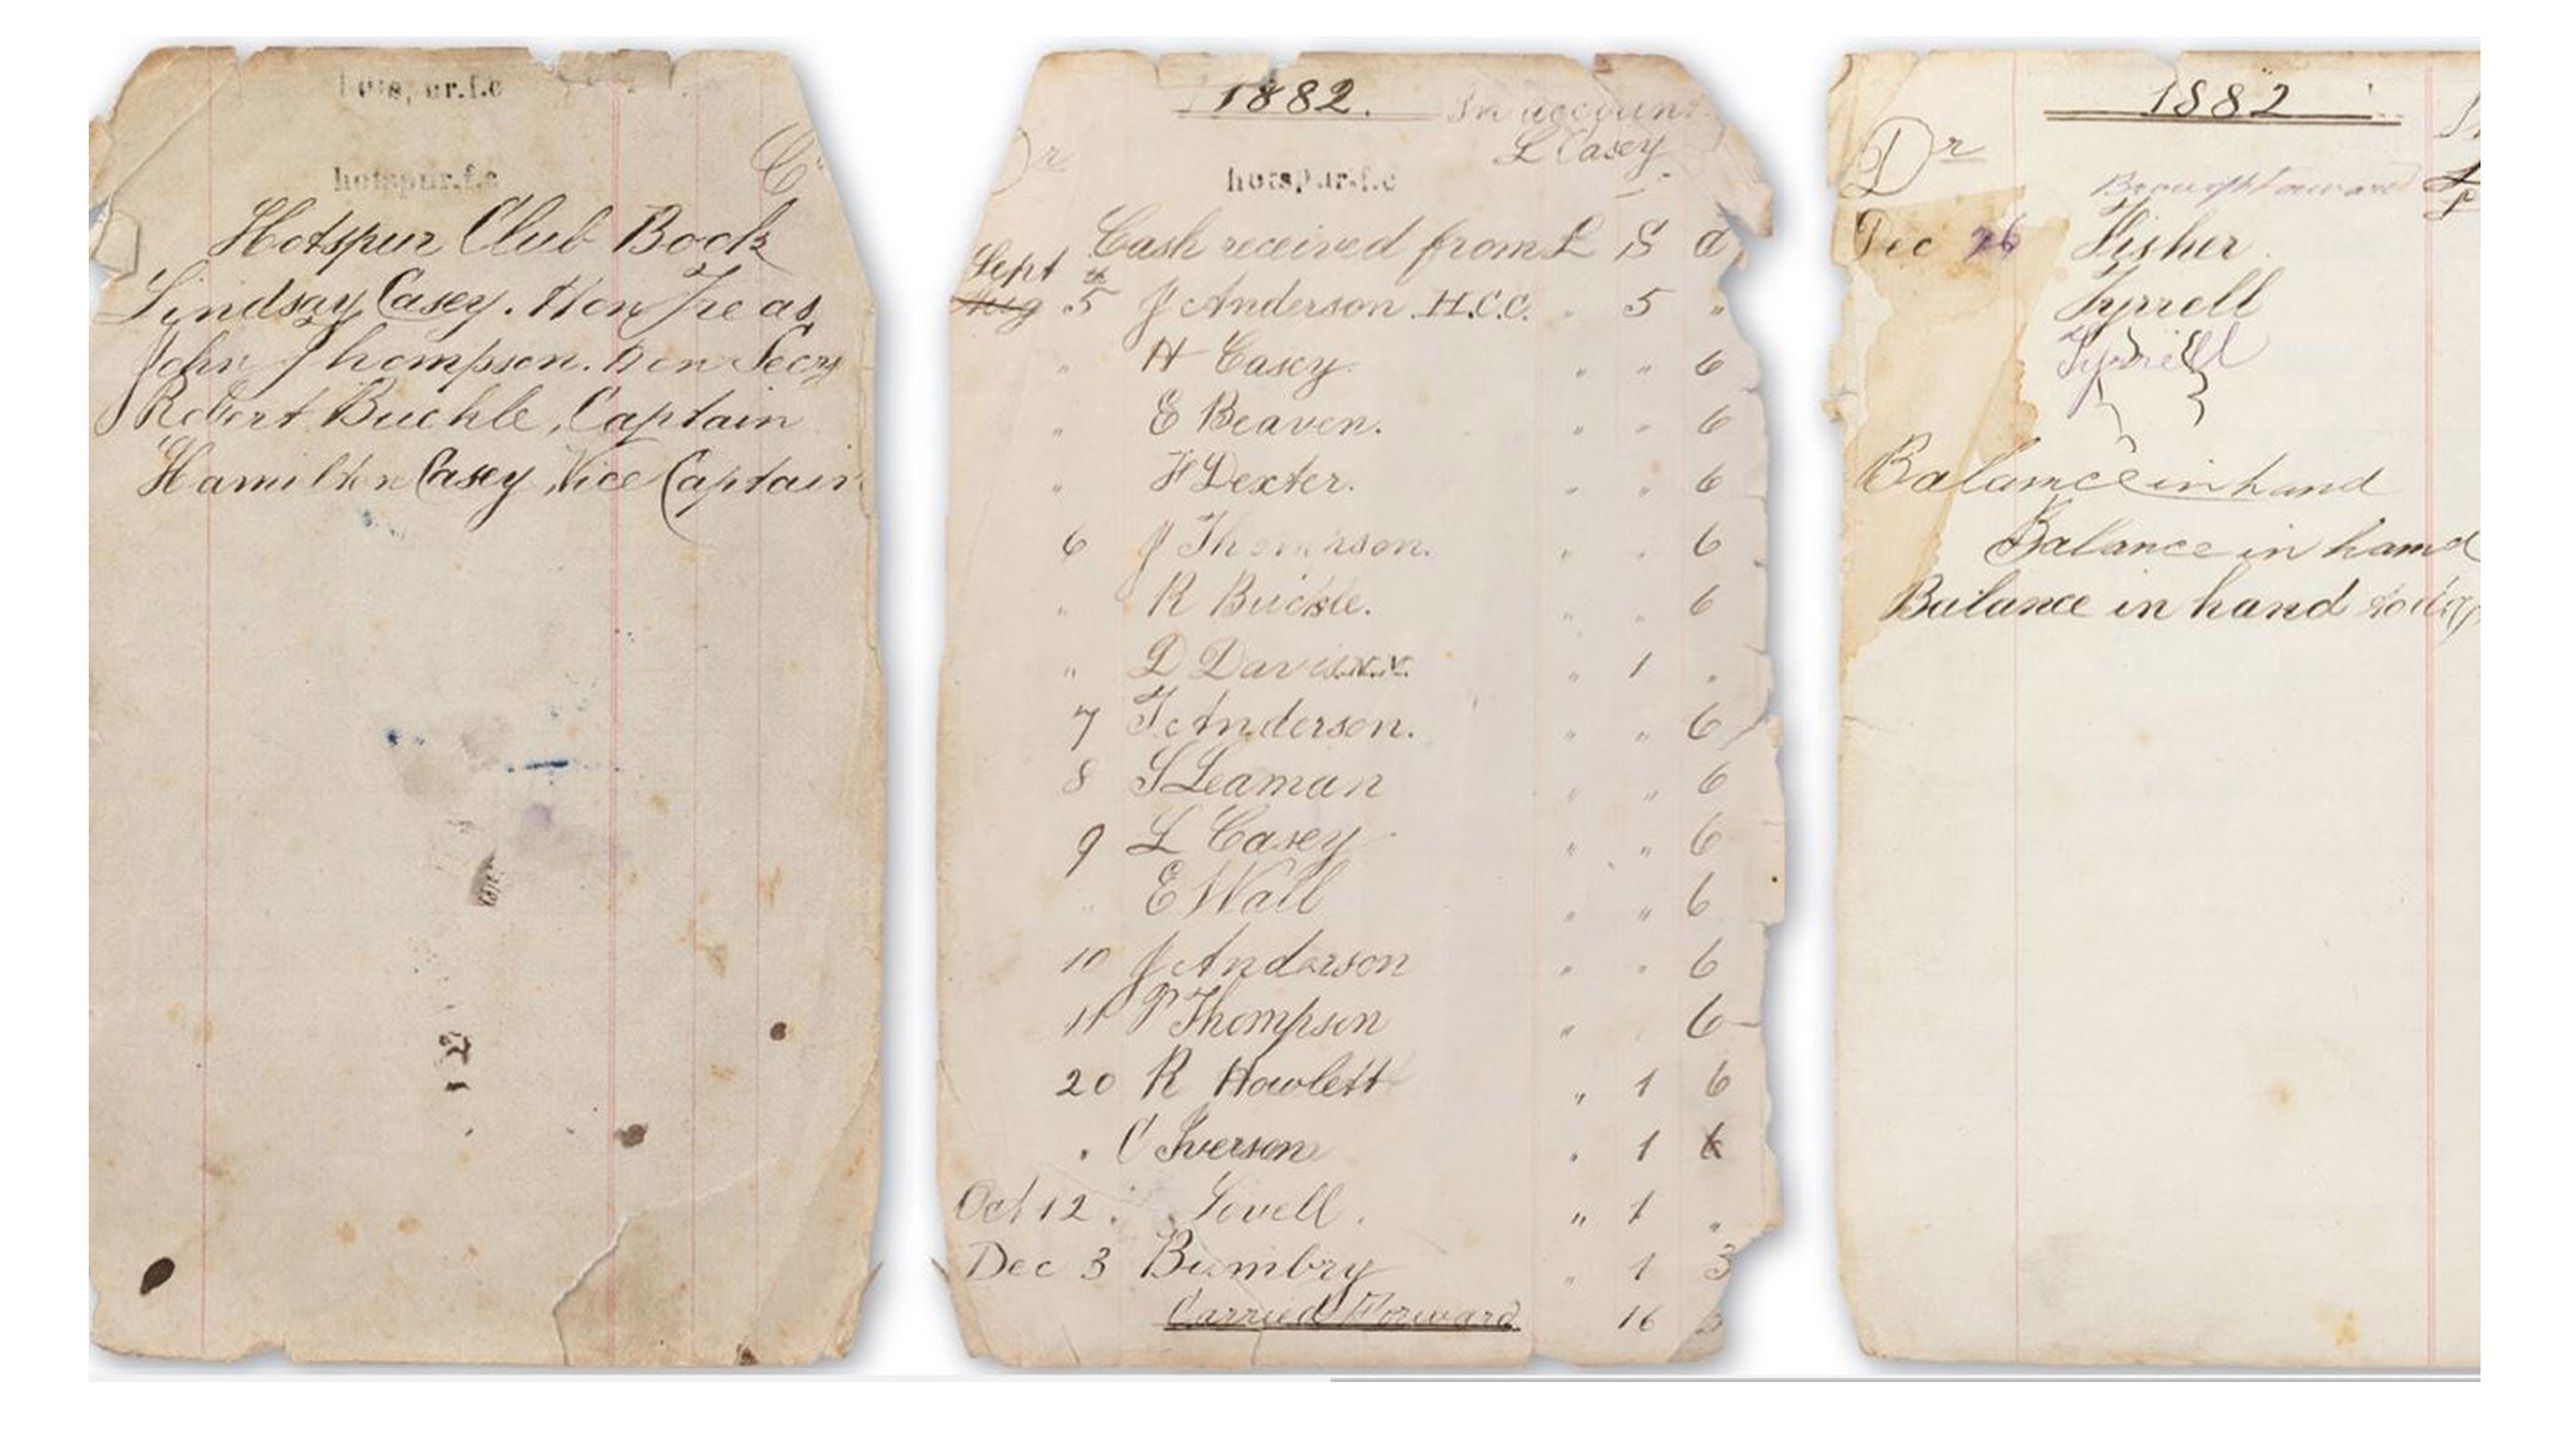 hotspur.f.c
hotspur.f.c
Cr
Hotspur Club Book
Lindsay Casey. Hon Treas
John Thompson. Hon Secry
Robert Buckle, Captain
Hamilton Casey, Vice Captain
1882. In account
L Casey
Dr
hotspur.f.c
Cash received from £ S d
Sept
Aug 5th J Anderson H.C.C. " 5 "
" H Casey " " 6
" E Beaven. " " 6
" F Dexter. " " 6
6 J Thompson. " " 6
" R Buckle. " " 6
" D Davis " 1 "
7 T. Anderson. " " 6
8 S Leaman " " 6
9 L Casey " " 6
" E Wall " " 6
10 J Anderson " " 6
11 P Thompson " 6
20 R Howlett " 1 6
" C Iverson " 1 6
Oct 12. Lovell. " 1 "
Dec 3 Bumbry " 1 3
Carried Forward 16
1882
Dr
Brought forward
Dec 26 Fisher
Tyrrell
Tyrrell
Balance in hand
Balance in hand
Balance in hand